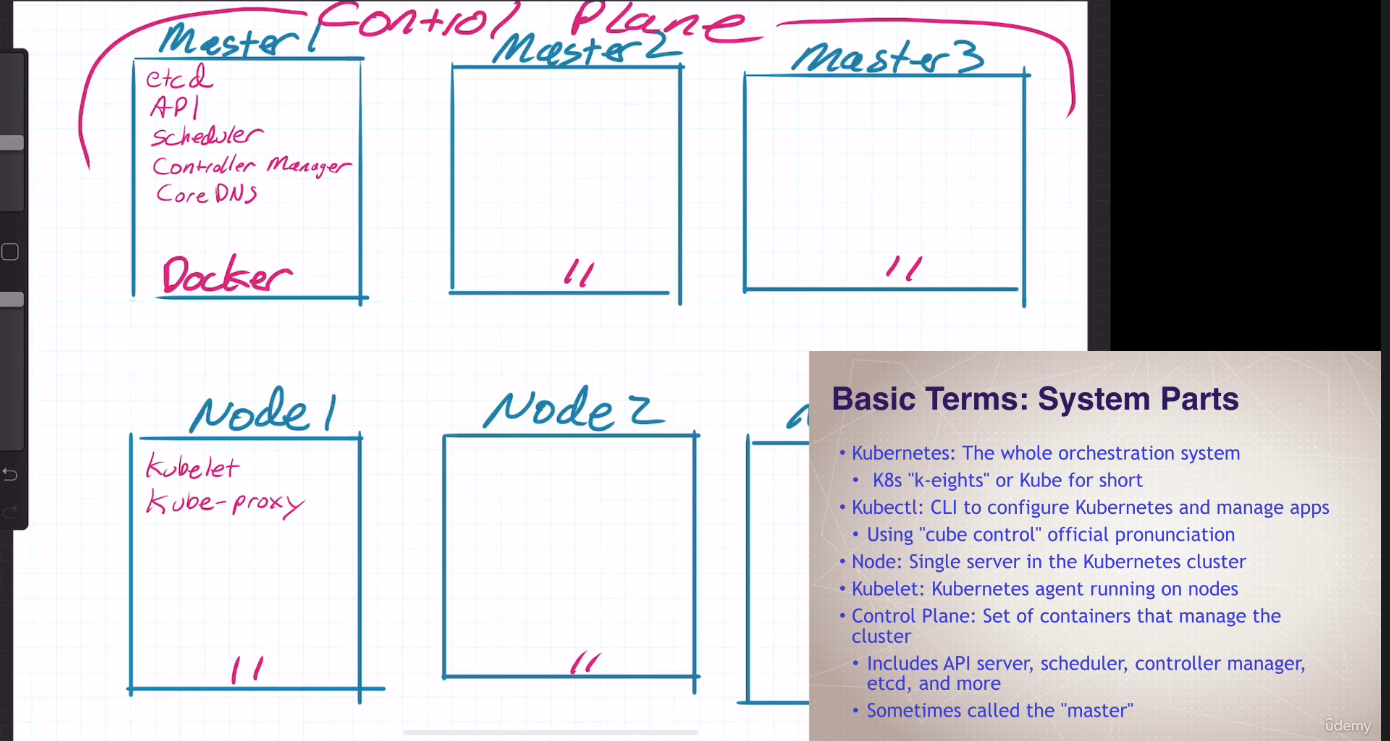 Control Plane
Master 1
Master 2
Master 3
etcd
API
Scheduler
Controller Manager
Core DNS
Docker
"
"
Node 1
Node 2
Kubelet
Kube-proxy
"
"
Basic Terms: System Parts
• Kubernetes: The whole orchestration system
• K8s "k-eights" or Kube for short
• Kubectl: CLI to configure Kubernetes and manage apps
• Using "cube control" official pronunciation
• Node: Single server in the Kubernetes cluster
• Kubelet: Kubernetes agent running on nodes
• Control Plane: Set of containers that manage the
cluster
• Includes API server, scheduler, controller manager,
etcd, and more
• Sometimes called the "master"
ûdemy